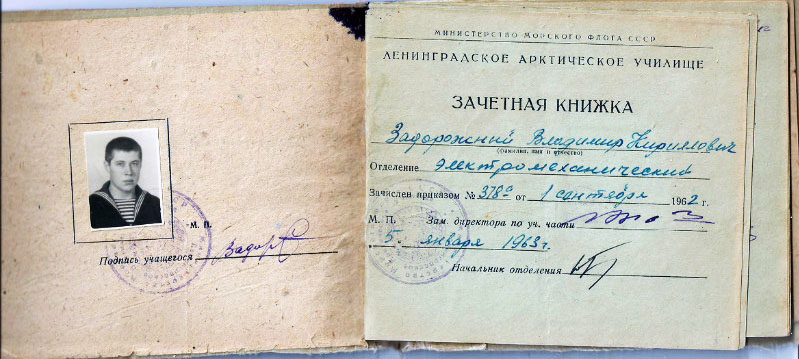 М. П.
Подпись учащегося Задор
МИНИСТЕРСТВО МОРСКОГО ФЛОТА СССР
ЛЕНИНГРАДСКОЕ АРКТИЧЕСКОЕ УЧИЛИЩЕ
ЗАЧЕТНАЯ КНИЖКА
Задорожный Владимир Кириллович
(фамилия, имя и отчество)
Отделение электромеханический
Зачислен приказом № 378а от 1 сентября 1962 г.
М. П. Зам. директора по уч. части
5 января 1963 г.
Начальник отделения